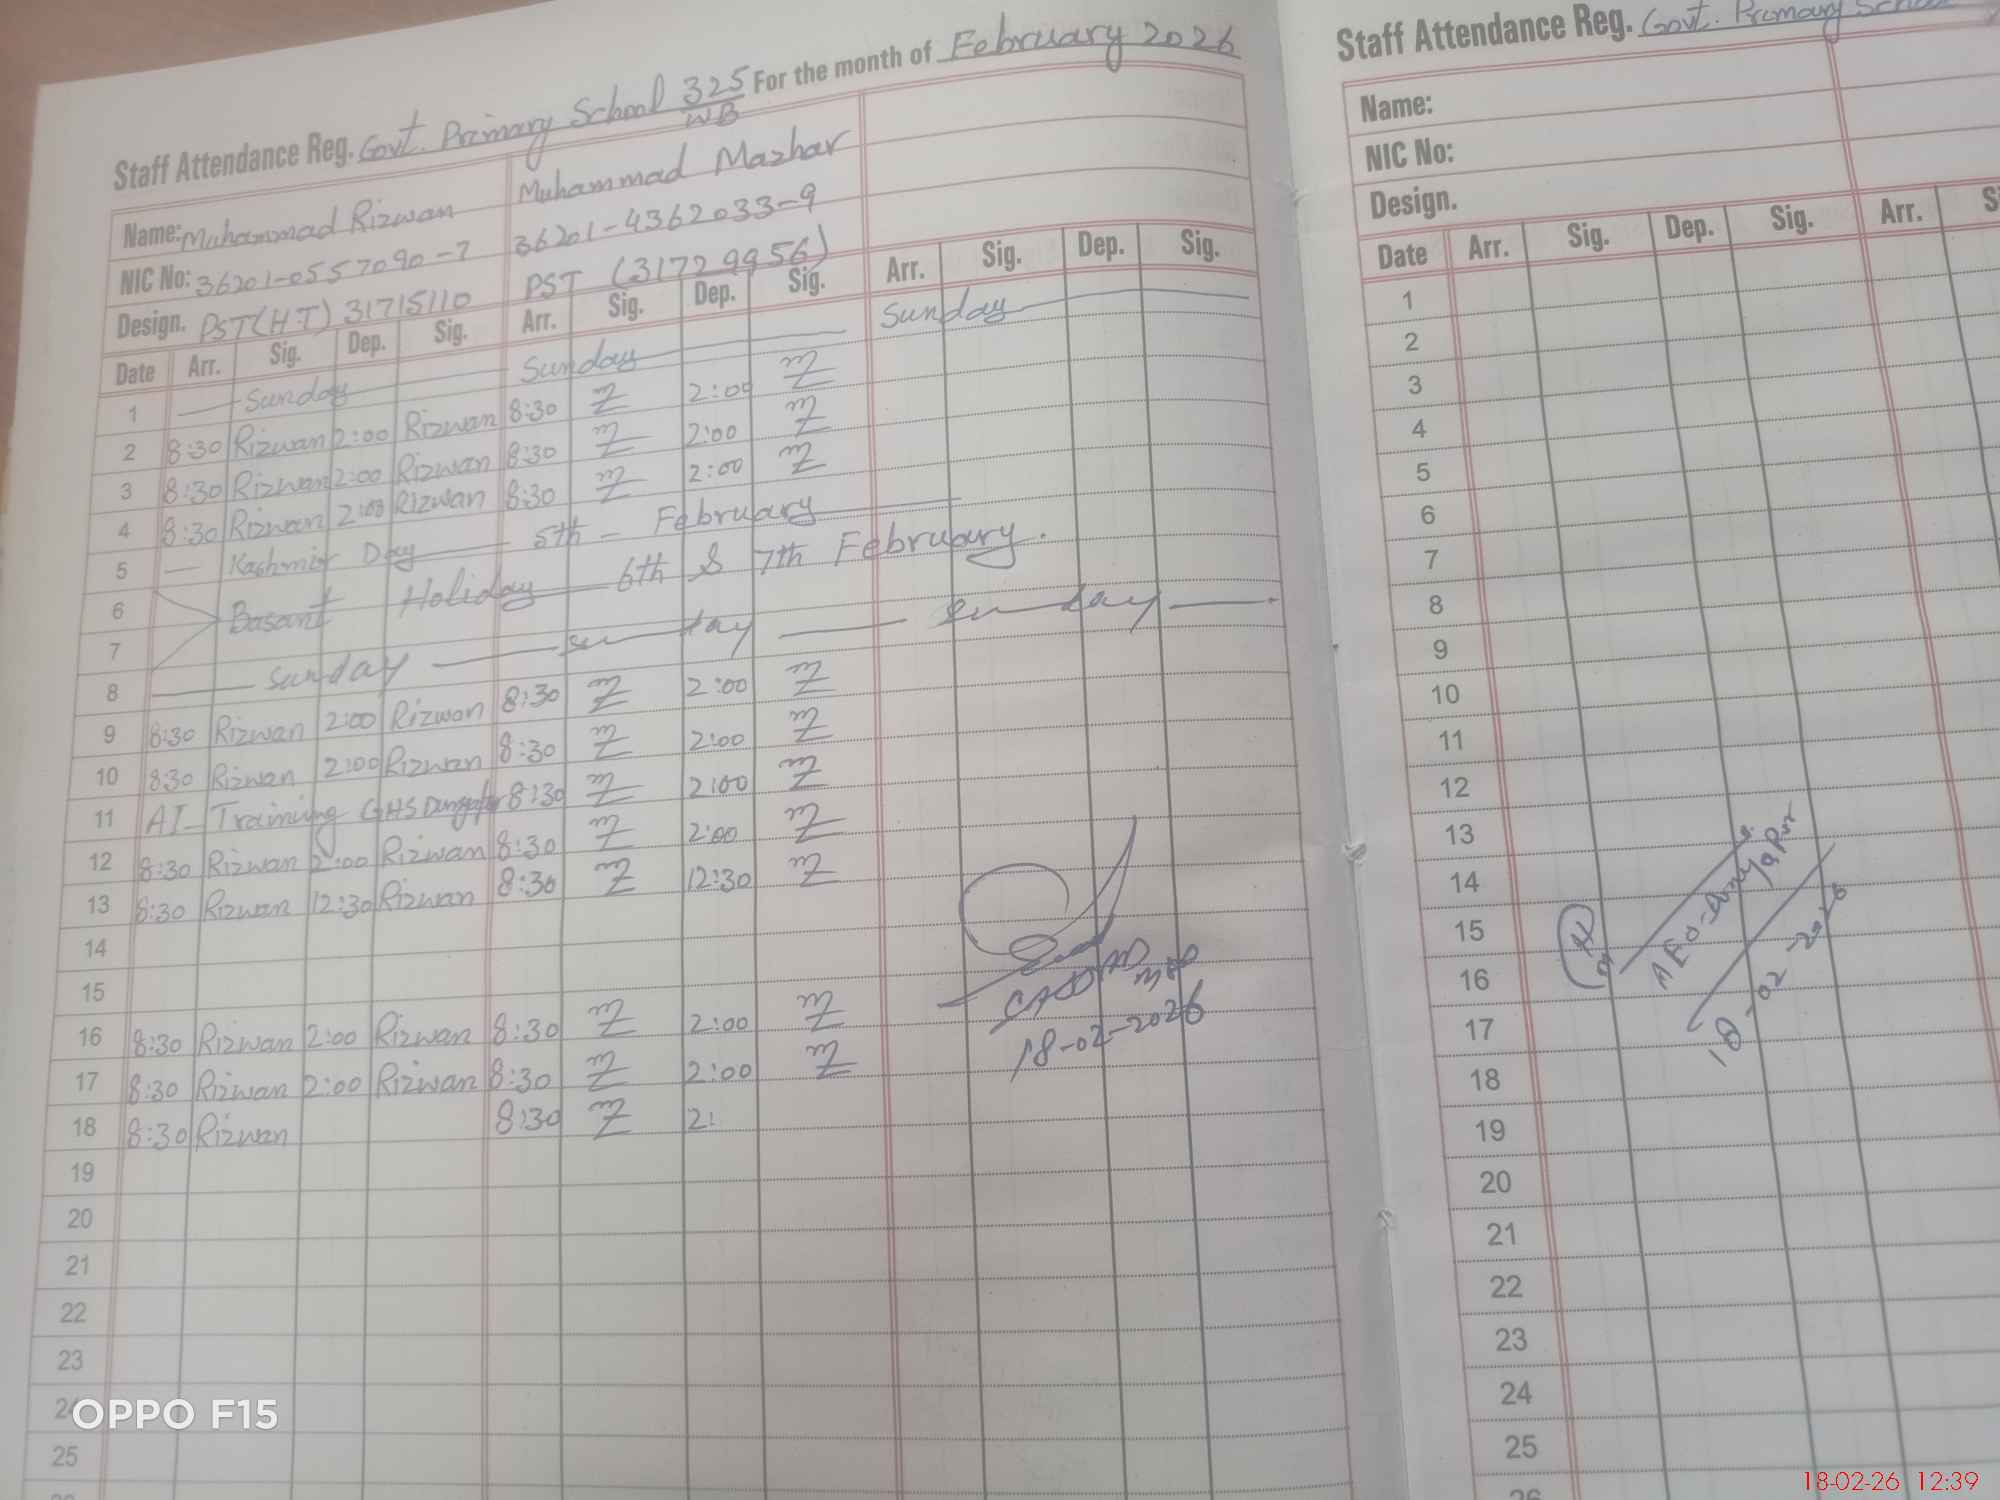 Staff Attendance Reg. Govt. Primary School 325/WB For the month of February 2026
Name: Muhammad Rizwan Muhammad Mazhar
NIC No: 36201-0557090-7 36201-4362033-9
Design. PST(HT) 31715110 PST (31729956)
Date Arr. Sig. Dep. Sig. Arr. Sig. Dep. Sig. Arr. Sig. Dep. Sig.
1 — Sunday — Sunday — Sunday —
2 8:30 Rizwan 2:00 Rizwan 8:30 2:00
3 8:30 Rizwan 2:00 Rizwan 8:30 2:00
4 8:30 Rizwan 2:00 Rizwan 8:30 2:00
5 — Kashmir Day — 5th - February —
6 Basant Holiday — 6th & 7th February.
7
8 — Sunday — Sunday — Sunday —
9 8:30 Rizwan 2:00 Rizwan 8:30 2:00
10 8:30 Rizwan 2:00 Rizwan 8:30 2:00
11 AI-Training GHS 8:30 2:00
12 8:30 Rizwan 2:00 Rizwan 8:30 2:00
13 8:30 Rizwan 12:30 Rizwan 8:30 12:30
14
15
16 8:30 Rizwan 2:00 Rizwan 8:30 2:00
17 8:30 Rizwan 2:00 Rizwan 8:30 2:00
18 8:30 Rizwan 8:30 2:
19
20
21
22
23
24
25
18-02-2026
OPPO F15
Staff Attendance Reg. Govt. Primary School
Name:
NIC No:
Design.
Date Arr. Sig. Dep. Sig. Arr.
1
2
3
4
5
6
7
8
9
10
11
12
13
14
15
16
17
18
19
20
21
22
23
24
25
26
AEO
18-02-2026
18-02-26 12:39